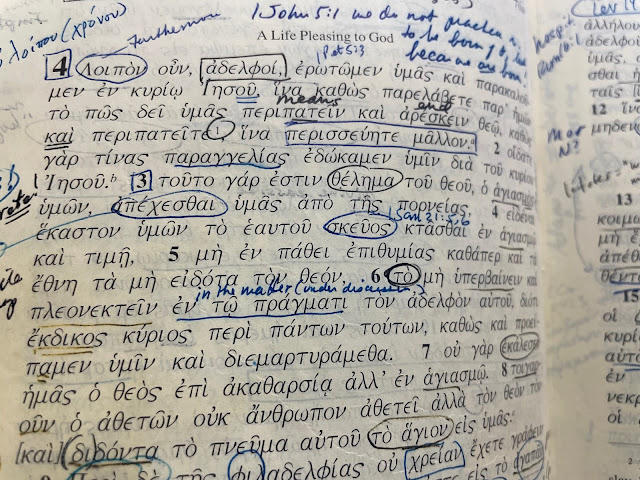 1 John 5:1 we do not
to be born of
because we are born
λοίπου (χρόνου)
Furthermore
A Life Pleasing to God
1 Pet 5:13
4 Λοιπὸν οὖν, ἀδελφοί, ἐρωτῶμεν ὑμᾶς καὶ παρακαλοῦ-
μεν ἐν κυρίῳ Ἰησοῦ, ἵνα καθὼς παρελάβετε παρ' ἡμῶν
means end
τὸ πῶς δεῖ ὑμᾶς περιπατεῖν καὶ ἀρέσκειν θεῷ, καθὼς
καὶ περιπατεῖτε, ἵνα περισσεύητε μᾶλλον.ᵃ 2 οἴδατε
γὰρ τίνας παραγγελίας ἐδώκαμεν ὑμῖν διὰ τοῦ κυρίου
Ἰησοῦ.ᵇ 3 τοῦτο γάρ ἐστιν θέλημα τοῦ θεοῦ, ὁ ἁγιασμὸς
ὑμῶν, ἀπέχεσθαι ὑμᾶς ἀπὸ τῆς πορνείας, 4 εἰδέναι
1 Sam 21:5,6
ἕκαστον ὑμῶν τὸ ἑαυτοῦ σκεῦος κτᾶσθαι ἐν ἁγιασμῷ
καὶ τιμῇ, 5 μὴ ἐν πάθει ἐπιθυμίας καθάπερ καὶ τὰ
ἔθνη τὰ μὴ εἰδότα τὸν θεόν, 6 τὸ μὴ ὑπερβαίνειν καὶ
in the matter (under discussion)
πλεονεκτεῖν ἐν τῷ πράγματι τὸν ἀδελφὸν αὐτοῦ, διότι
ἔκδικος κύριος περὶ πάντων τούτων, καθὼς καὶ προεί-
παμεν ὑμῖν καὶ διεμαρτυράμεθα. 7 οὐ γὰρ ἐκάλεσεν
ἡμᾶς ὁ θεὸς ἐπὶ ἀκαθαρσίᾳ ἀλλ' ἐν ἁγιασμῷ. 8 τοιγαρ-
οῦν ὁ ἀθετῶν οὐκ ἄνθρωπον ἀθετεῖ ἀλλὰ τὸν θεὸν τὸν
[καὶ] διδόντα τὸ πνεῦμα αὐτοῦ τὸ ἅγιον εἰς ὑμᾶς.
9 Περὶ δὲ τῆς φιλαδελφίας οὐ χρείαν ἔχετε γράφειν
ἀλλήλου
ἀδελφοί
σθαι
ταῖς
12 ἵνα
μηδενὸ
13
κοιμω
μὴ
ἀπέθα
θέντα
15
οἱ
εἰς
αὐτὸ
ἐν
νεκρ
οἱ